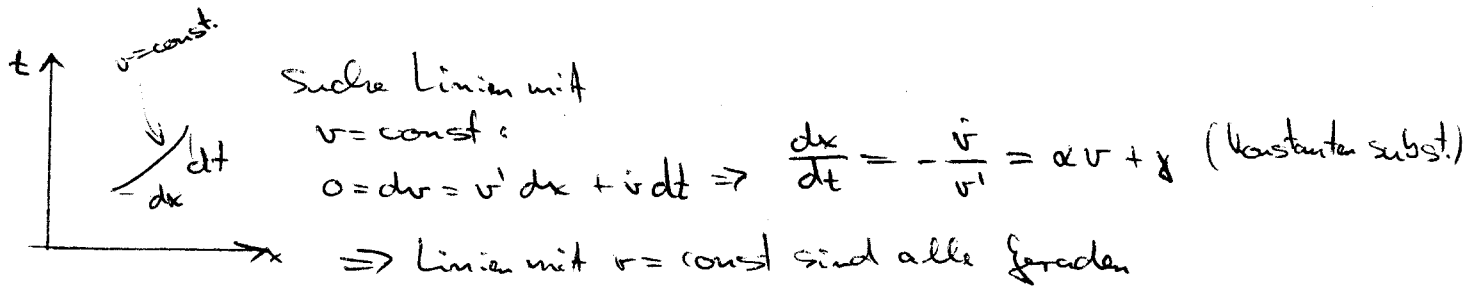 v=const.
t
Suche Linien mit
v = const :
dt
dx
0 = dv = v' dx + v̇ dt ⇒ dx/dt = - v̇/v' = αv + γ (Konstanten subst.)
x
⇒ Linien mit v = const sind alle Geraden